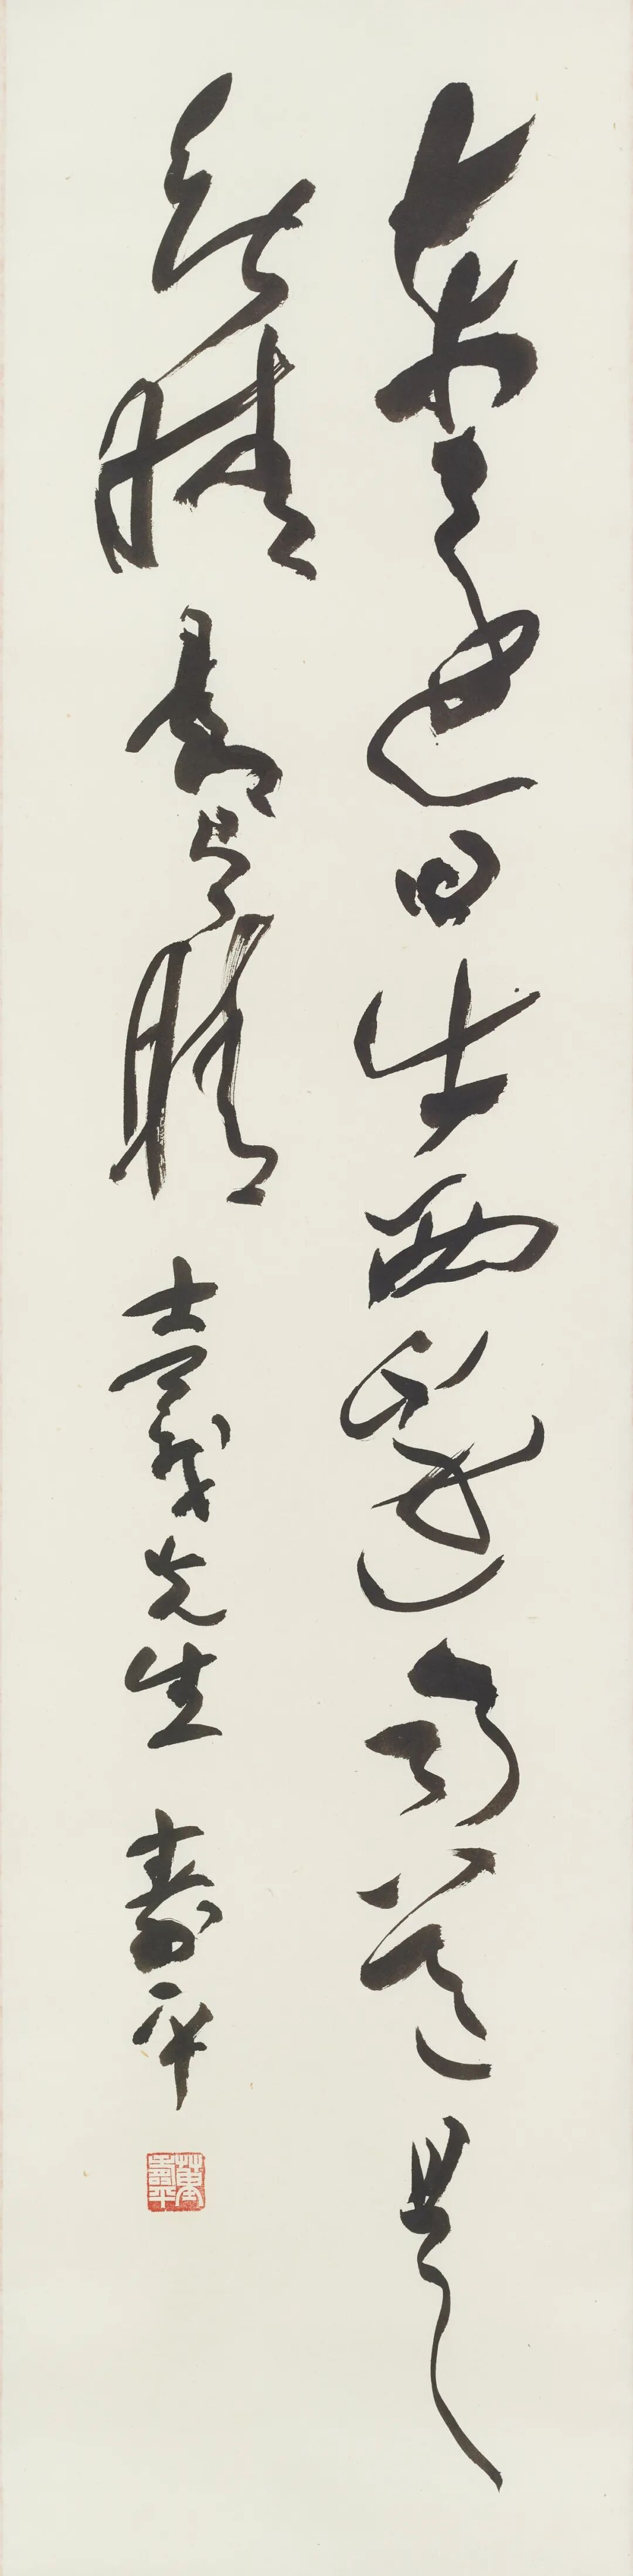 東邊日出西邊雨道是
無晴還有晴
士義先生 壽平
董壽平